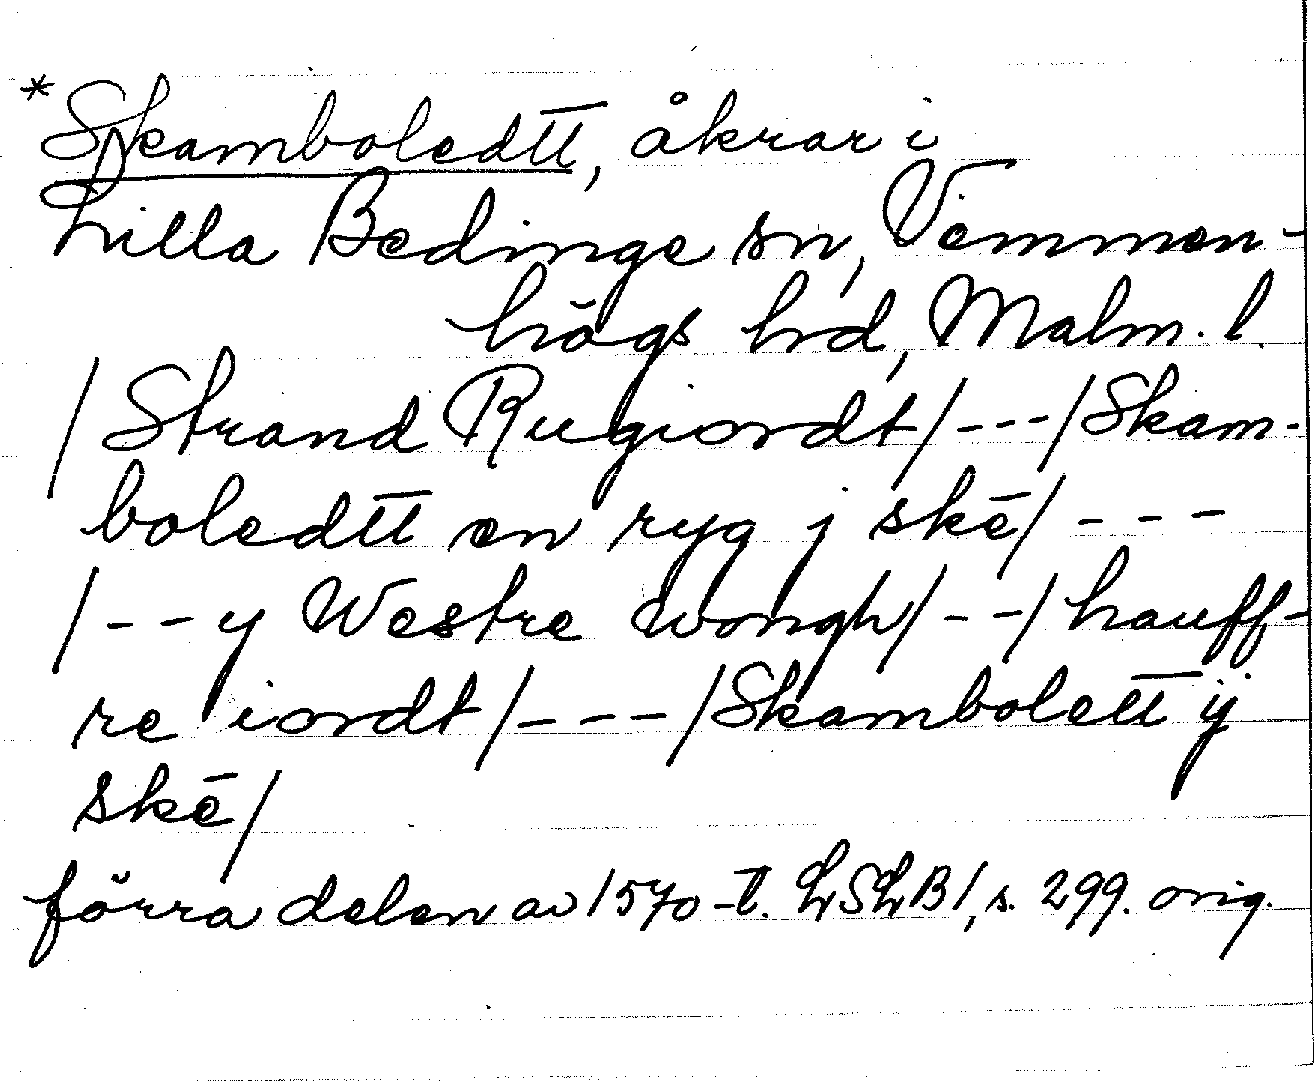 *Skamboledtt, åkrar i
Lilla Bedinge sn, Vemmen-
högs hd, Malm. l.
/Strand Rugiordt/---/Skam-
boledtt en ryg j skē/---
/--y Westre Wongh/--/hauff-
re iordt/---/Skambolett ÿ
skē/
förra delen av 1570-t. LSLB1, s. 299. orig.